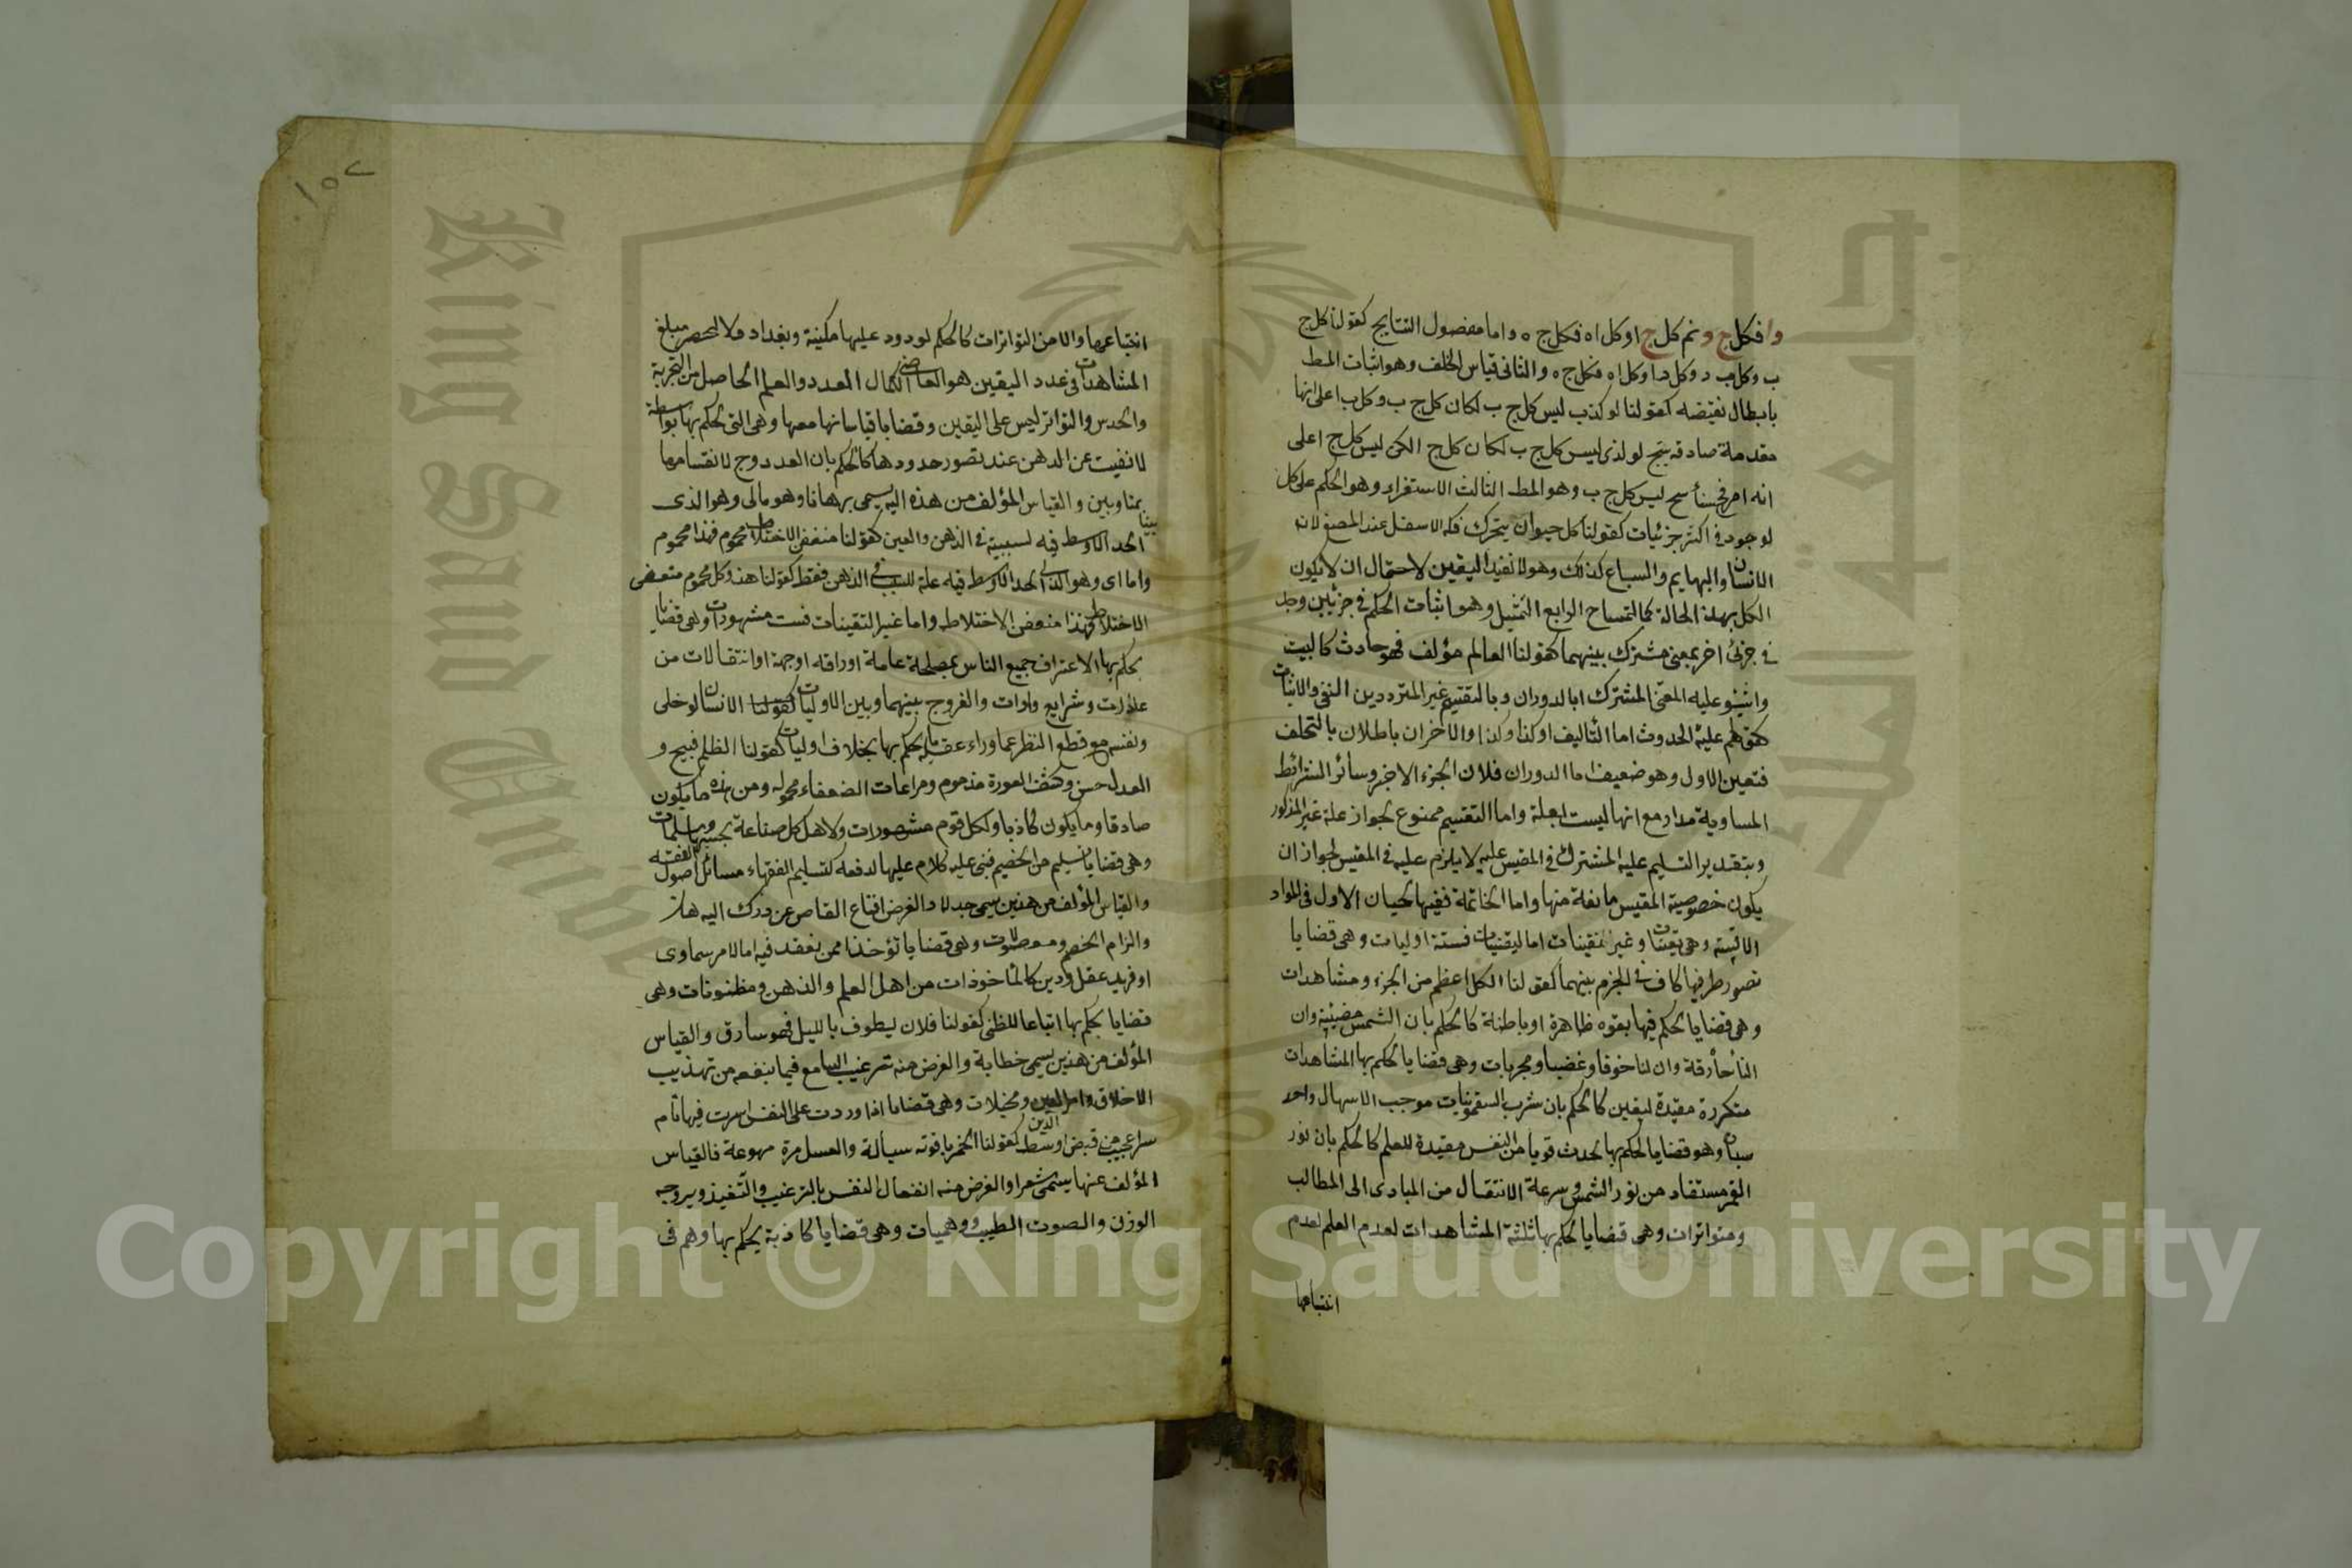 وا فكل ج د ثم كل ج ا وكل اه فكل ج ه واما مفصول النتايج كقولنا كل ج
ب وكل ب د وكل د ا وكل اه فكل ج ه والثانى قياس الخلف وهو اثبات المط
بابطال نقيضه كقولنا لو كذب ليس كل ج ب لكان كل ج ب وكل ب ا على انها
مقدمة صادقة ينتج لو لذى ليس كل ج ب لكان كل ج ا لكن ليس كل ج ا على
انه امر ليس كل ج ب وهو المط الثالث الاستقراء وهو الحكم على كل
لوجوده فى اكثر جزئيات كقولنا كل حيوان يتحرك فكه الاسفل عند المضغ لان
الانسان والبهايم والسباع كذلك وهو لا تفيد اليقين لاحتمال ان لا يكون
الكل بهذة الحالة كالتمساح الرابع التمثيل وهو اثبات الحكم فى جزئين وجد
فى جزئ اخر بمعنى مشترك بينهما كقولنا العالم مؤلف فهو حادث كالبيت
واثبتو عليه المعنى المشترك ابالدوران وبالتقسيم غير المترددين النفى والاثبات
كقولهم علية الحدوث اما التأليف اوكذا وكذا والاخران باطلان بالتخلف
فتعين الاول وهو ضعيف اما الدوران فلان الجزء الاخير وسائر الشرائط
المساوية مدار مع انها ليست لعلة واما التقسيم ممنوع لجواز علة غير المذكور
وبتقدير التسليم علية المشترك فى المقيس عليه لا يلزم عليه فى المقيس لجواز ان
يكون خصوصية المقيس مانعة منها واما الخاتمة ففيها بحيان الاول فى المواد
الاقيسة وهى يقينيات وغير يقينيات اما ليقينيات فستة اوليات وهى قضايا
تصور طرفيها كاف فى الجزم بينهما كقولنا الكل اعظم من الجزء ومشاهدات
وهى قضايا يحكم فيها بقوه ظاهرة او باطنة كالحكم بان الشمس مضيئة وان
النار حارقة وان لنا خوفا وغضبا ومجربات وهى قضايا يحكم بها المشاهدات
متكررة مفيدة ليقين كالحكم بان شرب السقمونيات موجب الاسهال واحد
سيات وهو قضايا يحكم بها لحدث قويا من النفس مفيدة للعلم كالحكم بان نور
القمر مستفاد من نور الشمس وسرعة الانتقال من المبادى الى المطالب
ومتواترات وهى قضايا يحكم بها ثلثة المشاهدات لعدم العلم لعدم
انتباعها
١٥٢
انتباعها والامن التواترات كالحكم لوجود عليها مكينة وبغداد ولا لحصر مبلغ
المشاهدات فى عدد اليقين هو القاضى الكمال العدد والعلم الحاصل من التجربة
والحدس والتواتر ليس على اليقين وقضايا قياساتها معها وهى التى يحكم بها بواسطة
لا تغيب عن الذهن عند تصور حدودها كالحكم بان العدد زوج لانقسامها
بمتاوبين والقياس المؤلف من هذه اليه يسمى برهانا وهو مالى وهو الذى
الحد الاوسط فيه لسببية فى الذهن والعين كقولنا متعفن الاختلاط محموم فهذا محموم
واما اى وهو الذى الحد الاوسط فيه علة للسبب فى الذهن فقط كقولنا هذ وكل محموم متعفى
الاختلاط فهذا متعفن الاختلاط واما غير التقينات فست مشهودات وهى قضايا
يحكم بها الاعتراف جميع الناس بمصلحة عامة او رافة او جمة او انتقالات من
علارات وشرايع وادات والفروج بينهما وبين الاوليات كقولنا الانسان لو خلى
ونفسه مع قطع النظر عما وراء عقله يحكم بها بخلاف اوليات كقولنا الظلم قبيح و
العدل حسن وكشف العورة مذموم ومراعات الضعفاء محمود ومن هذه ما يكون
صادقا وما يكون كاذبا ولكل قوم مشهورات ولاهل كل صناعة بحسبها ومسلمات
وهى قضايا تسليم من الخضيم فبنى عليه كلام عليها لدفعه كتسليم الفقهاء مسائل اصول الفقه
والقياس المؤلف من هذين سمى جدلا والغرض اقناع القاص عن درك اليه هان
والزام الخصم ومقبولات وهى قضايا تؤخذ ممن يعقد فيه اما لامر سماوى
او فريد عقل ودين كالمأخوذات من اهل العلم والذهن ومظنونات وهى
قضايا يحكم بها اتباعا للظنى كقولنا فلان ليطوف بالليل فهو سارق والقياس
المؤلف من هذين يسمى خطابة والغرض منه ترغيب السامع فيما ينفعه من تهذيب
الاخلاق وامر الدين ومخيلات وهى قضايا اذا وردت على النفس اسرت فيها تامه
سراعجيب من قبض او بسط كقولنا الخمر ياقوته سيالة والعسل مرة مهوعة فالقياس
المؤلف عنها يسمى شعرا والغرض منه انفعال النفس بالترغيب والتنفيذ ويروجه
الوزن والصوت الطيب ووهميات وهى قضايا كاذبة يحكم بها وهم فى
King Saud University
جامعة الملك
Copyright © King Saud University